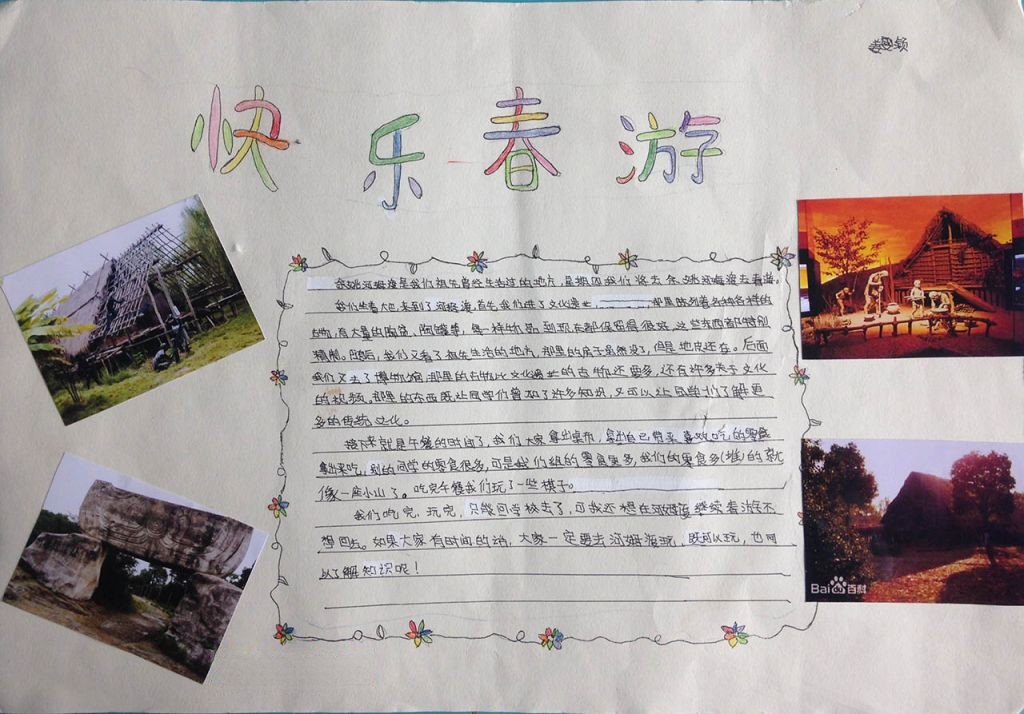 快乐春游
余姚河姆渡是我们祖先曾经生活过的地方,星期四我们将去余姚河姆渡去春游。
我们坐着大巴来到了河姆渡,首先我们进了文化遗址 那里陈列着各种各样的
古物,有大量的陶釜,陶罐等,每一样物品到现在都保留得很好,这些东西都特别
精美。随后,我们又看了祖先生活的地方,那里的房子虽然没了,但是地皮还在。后面
我们又去了博物馆,那里的古物比文化遗址的古物还要多,还有许多关于文化
的视频,那里的东西既让同学们增加了许多知识,又可以让同学们了解更
多的传统文化。
接下来就是午餐的时间了,我们大家拿出桌布,拿出自己带来喜欢吃的零食
拿出来吃,别的同学的零食很多,可是我们组的零食更多,我们的零食多(堆)的就
像一座小山了。吃完午餐我们玩了一些棋子。
我们吃完,玩完,只能回学校去了,可我还想在河姆渡继续春游不
想回去。如果大家有时间的话,大家一定要去河姆渡玩,既可以玩,也可
以了解知识呢!
Bai百科